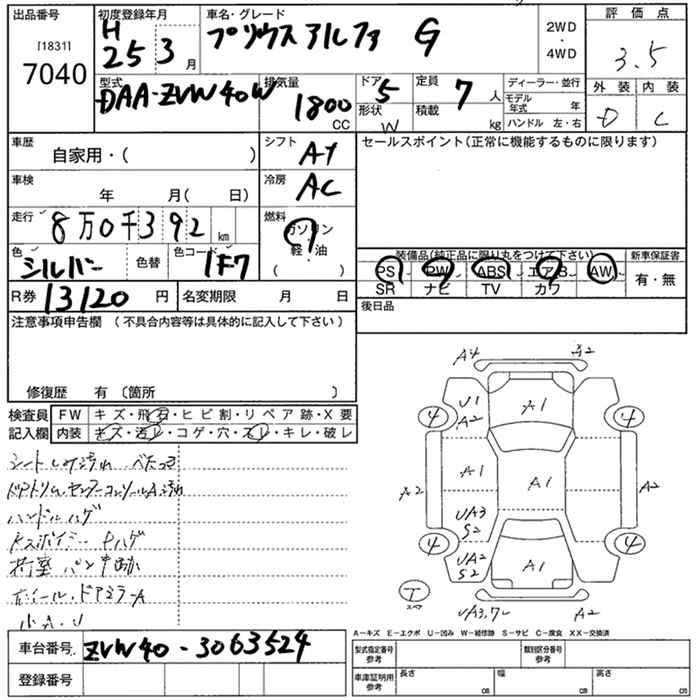 出品番号
[1831]
7040
初度登録年月
H
25 3 月
車名・グレード
プリウスアルファ G
2WD
・
4WD
評価点
3.5
外装 内装
D C
型式
DAA-ZVW40W
排気量
1800
CC
ドア 5
形状 W
定員 7 人
積載 kg
ディーラー・並行
モデル年式 年
ハンドル 左・右
車歴
自家用・( )
シフト AT
セールスポイント(正常に機能するものに限ります)
車検
年 月( 日)
冷房 AC
走行
8万0千392 km
燃料
ガソリン
軽・油
( )
色 シルバー 色替
色コード 1F7
装備品(純正品に限り丸をつけて下さい)
PS PW ABS エアB AW
SR ナビ TV カワ
新車保証書
有・無
R券 13120 円
名変期限 月 日
後日品
注意事項申告欄 (不具合内容等は具体的に記入して下さい)
修復歴 有 〔箇所 〕
検査員
記入欄
FW キズ・飛石・ヒビ割・リペア跡・X要
内装 キズ・汚レ・コゲ・穴・スレ・キレ・破レ
ハンドルハゲ
小A.U
A4 A2
U1
A2
A1
4 4
A2 A1 A1 A2
UA3
S2
4 4
UA2
S2
A1
T
スペア
A2
A-キズ E-エクボ U-凹み W-補修跡 S-サビ C-腐食 XX-交換済
車台番号 ZVW40-3063524
登録番号
型式指定番号
参考
類別区分番号
参考
車庫証明用
参考
長さ cm
幅 cm
高さ cm